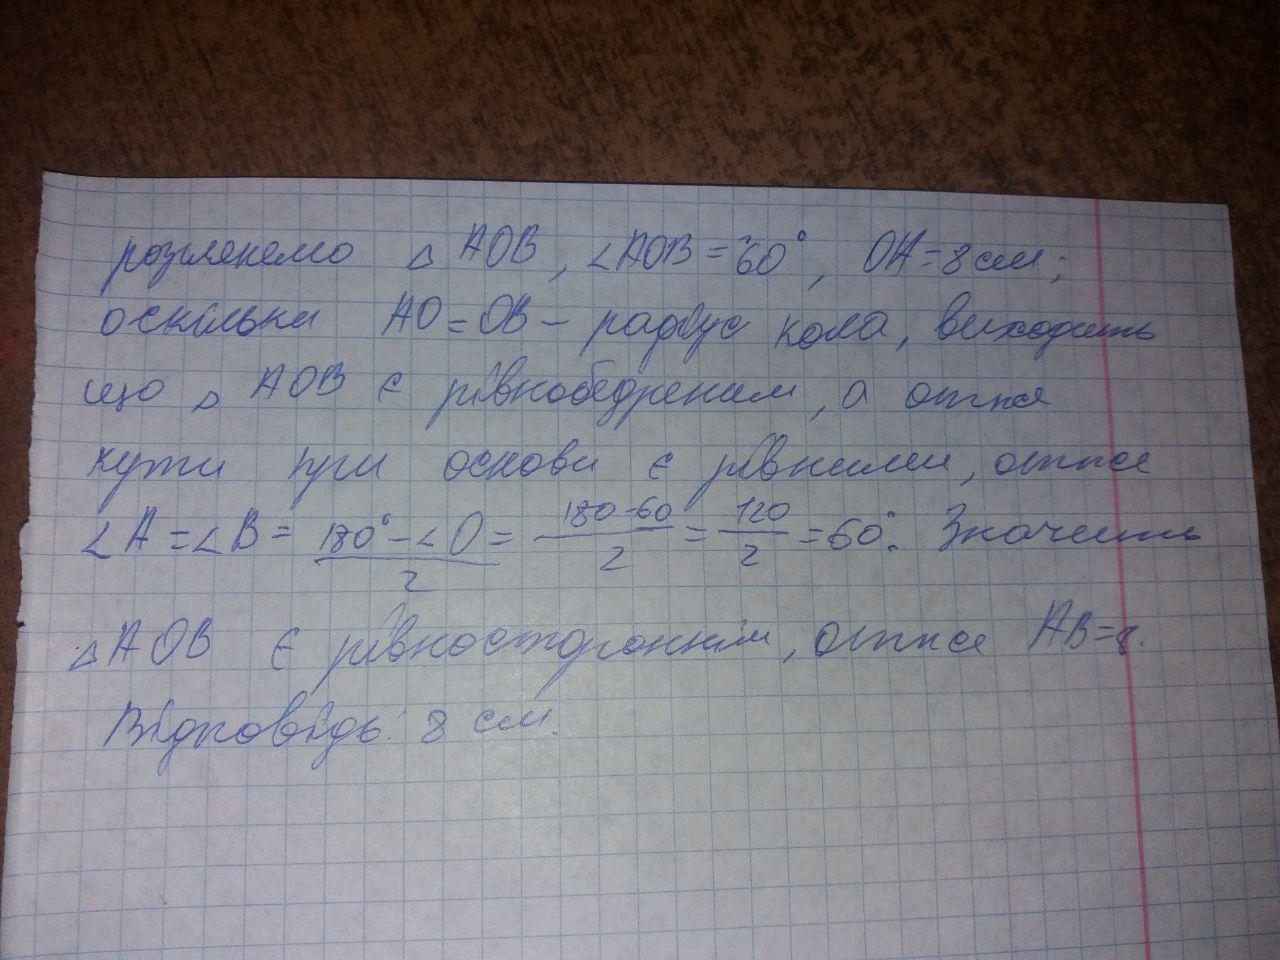 розглянемо △ AOB, ∠AOB = 60°, OA = 8 см;
оскільки AO = OB – радіус кола, виходить
що △ AOB є рівнобедреним, а отже
кути при основі є рівними, отже
∠A = ∠B = (180° - ∠O)/2 = (180 - 60)/2 = 120/2 = 60°. Значить
△ AOB є рівностороннім, отже AB = 8.
Відповідь: 8 см.